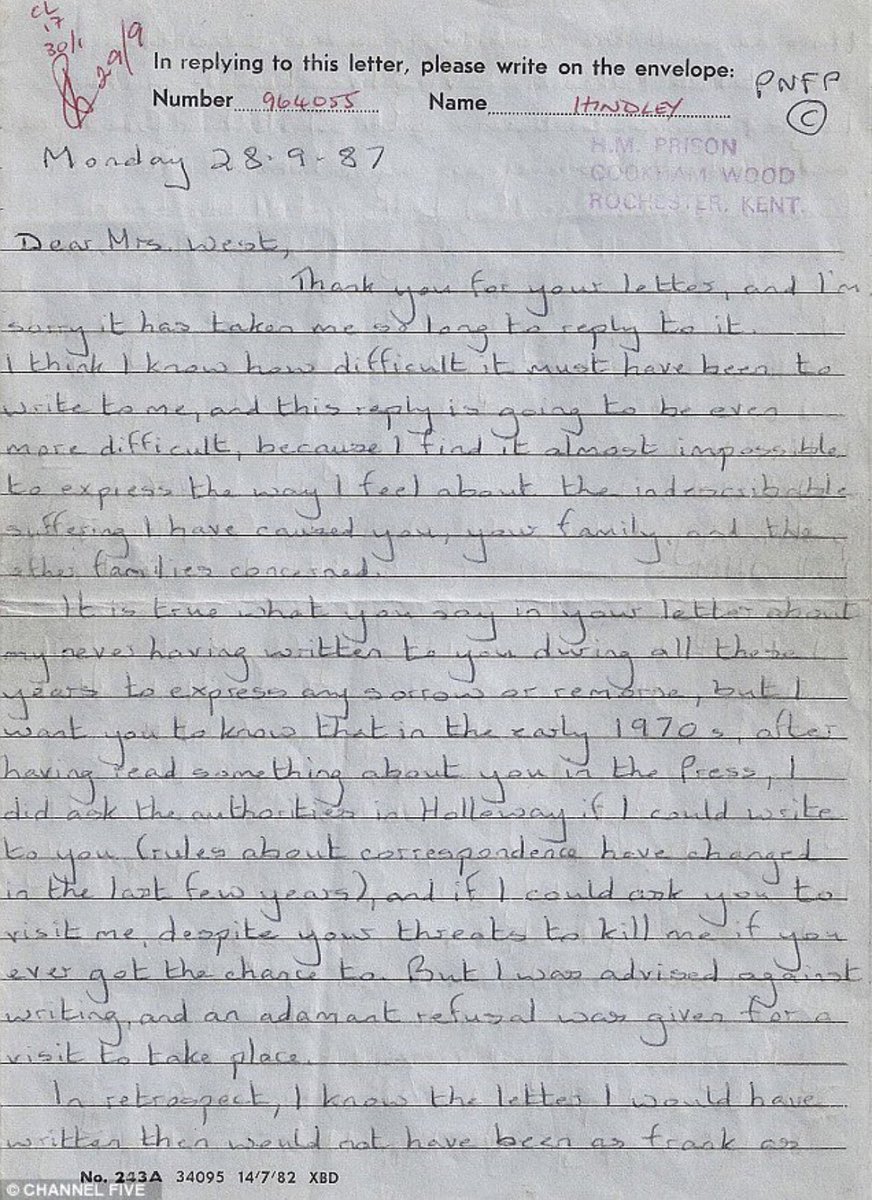 CL
17
30/1
29/9
In replying to this letter, please write on the envelope:
Number 964055 Name HINDLEY
PNFP
C
H.M. PRISON
COOKHAM WOOD
ROCHESTER, KENT.
Monday 28.9.87
Dear Mrs. West,
Thank you for your letter, and I'm
sorry it has taken me so long to reply to it.
I think I know how difficult it must have been to
write to me, and this reply is going to be even
more difficult, because I find it almost impossible
to express the way I feel about the indescribable
suffering I have caused you, your family, and the
other families concerned.
It is true what you say in your letter about
my never having written to you during all these
years to express any sorrow or remorse, but I
want you to know that in the early 1970s, after
having read something about you in the Press, I
did ask the authorities in Holloway if I could write
to you (rules about correspondence have changed
in the last few years), and if I could ask you to
visit me, despite your threats to kill me if you
ever got the chance to. But I was advised against
writing, and an adamant refusal was given for a
visit to take place.
In retrospect, I know the letter I would have
written then would not have been as frank as
No. 243A 34095 14/7/82 XBD
© CHANNEL FIVE